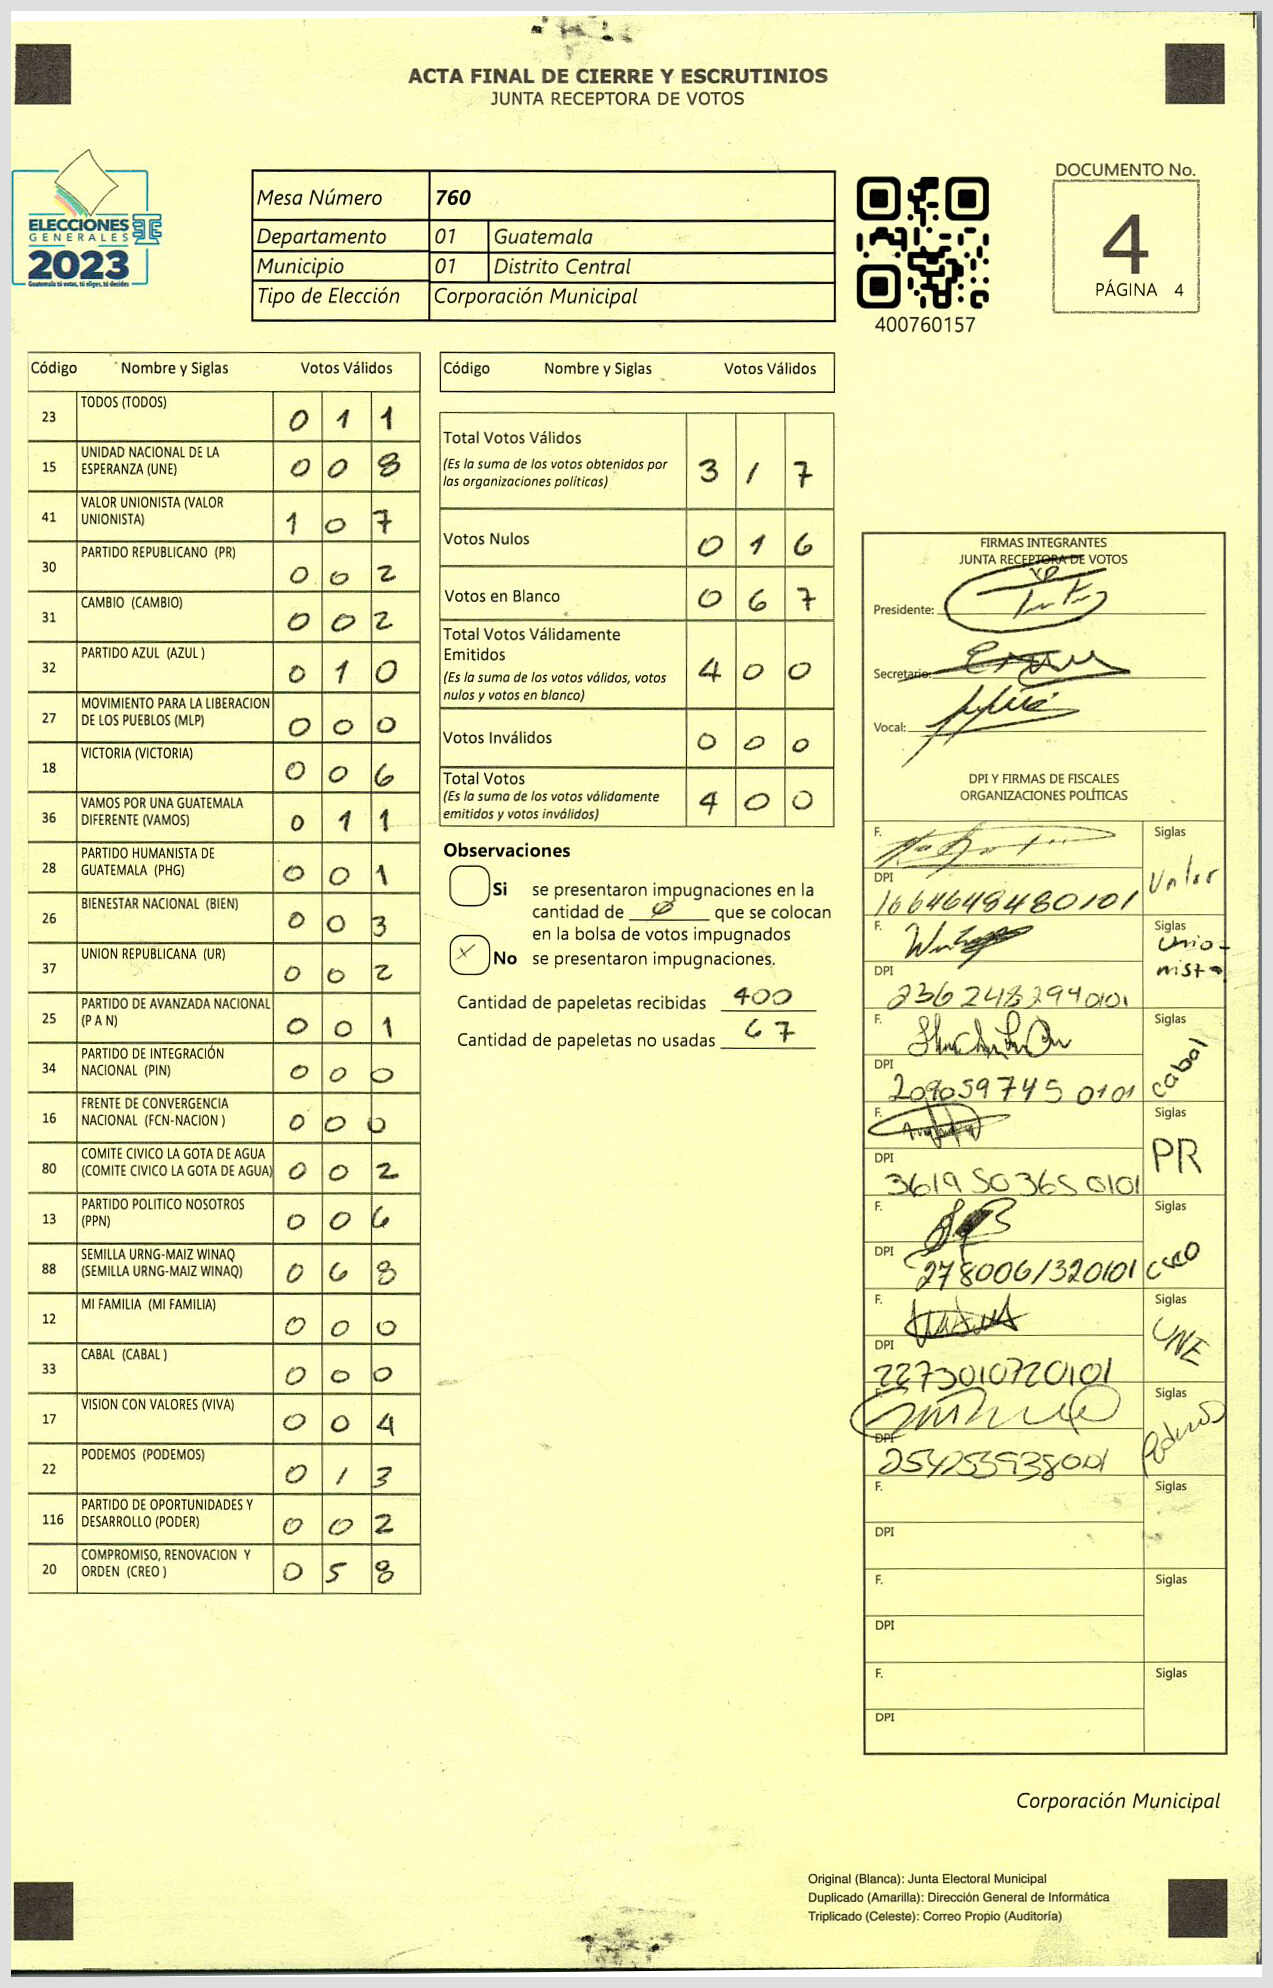 ACTA FINAL DE CIERRE Y ESCRUTINIOS
JUNTA RECEPTORA DE VOTOS
ELECCIONES
GENERALES
2023
Guatemala tú votas, tú eliges, tú decides
Mesa Número 760
Departamento 01 Guatemala
Municipio 01 Distrito Central
Tipo de Elección Corporación Municipal
400760157
DOCUMENTO No.
4
PÁGINA 4
Código Nombre y Siglas Votos Válidos
23 TODOS (TODOS) 0 1 1
15 UNIDAD NACIONAL DE LA ESPERANZA (UNE) 0 0 8
41 VALOR UNIONISTA (VALOR UNIONISTA) 1 0 7
30 PARTIDO REPUBLICANO (PR) 0 0 2
31 CAMBIO (CAMBIO) 0 0 2
32 PARTIDO AZUL (AZUL ) 0 1 0
27 MOVIMIENTO PARA LA LIBERACION DE LOS PUEBLOS (MLP) 0 0 0
18 VICTORIA (VICTORIA) 0 0 6
36 VAMOS POR UNA GUATEMALA DIFERENTE (VAMOS) 0 1 1
28 PARTIDO HUMANISTA DE GUATEMALA (PHG) 0 0 1
26 BIENESTAR NACIONAL (BIEN) 0 0 3
37 UNION REPUBLICANA (UR) 0 0 2
25 PARTIDO DE AVANZADA NACIONAL (P A N) 0 0 1
34 PARTIDO DE INTEGRACIÓN NACIONAL (PIN) 0 0 0
16 FRENTE DE CONVERGENCIA NACIONAL (FCN-NACION ) 0 0 0
80 COMITE CIVICO LA GOTA DE AGUA (COMITE CIVICO LA GOTA DE AGUA) 0 0 2
13 PARTIDO POLITICO NOSOTROS (PPN) 0 0 6
88 SEMILLA URNG-MAIZ WINAQ (SEMILLA URNG-MAIZ WINAQ) 0 6 8
12 MI FAMILIA (MI FAMILIA) 0 0 0
33 CABAL (CABAL ) 0 0 0
17 VISION CON VALORES (VIVA) 0 0 4
22 PODEMOS (PODEMOS) 0 1 3
116 PARTIDO DE OPORTUNIDADES Y DESARROLLO (PODER) 0 0 2
20 COMPROMISO, RENOVACION Y ORDEN (CREO ) 0 5 8
Código Nombre y Siglas Votos Válidos
Total Votos Válidos 3 1 7
(Es la suma de los votos obtenidos por
las organizaciones políticas)
Votos Nulos 0 1 6
Votos en Blanco 0 6 7
Total Votos Válidamente
Emitidos 4 0 0
(Es la suma de los votos válidos, votos
nulos y votos en blanco)
Votos Inválidos 0 0 0
Total Votos 4 0 0
(Es la suma de los votos válidamente
emitidos y votos inválidos)
Observaciones
Si se presentaron impugnaciones en la
cantidad de 0 que se colocan
en la bolsa de votos impugnados
X No se presentaron impugnaciones.
Cantidad de papeletas recibidas 400
Cantidad de papeletas no usadas 67
FIRMAS INTEGRANTES
JUNTA RECEPTORA DE VOTOS
Presidente:
Secretario:
Vocal:
DPI Y FIRMAS DE FISCALES
ORGANIZACIONES POLÍTICAS
F. Siglas Valor
DPI 1664648480101
F. Siglas Unionista
DPI 2362482940101
F. Siglas Cabal
DPI 2090597450101
F. Siglas PR
DPI 3619503650101
F. Siglas CREO
DPI 2780061320101
F. Siglas UNE
DPI 2273010720101
F. Siglas Podemos
DPI
F. Siglas
DPI
F. Siglas
DPI
F. Siglas
DPI
Corporación Municipal
Original (Blanca): Junta Electoral Municipal
Duplicado (Amarilla): Dirección General de Informática
Triplicado (Celeste): Correo Propio (Auditoría)